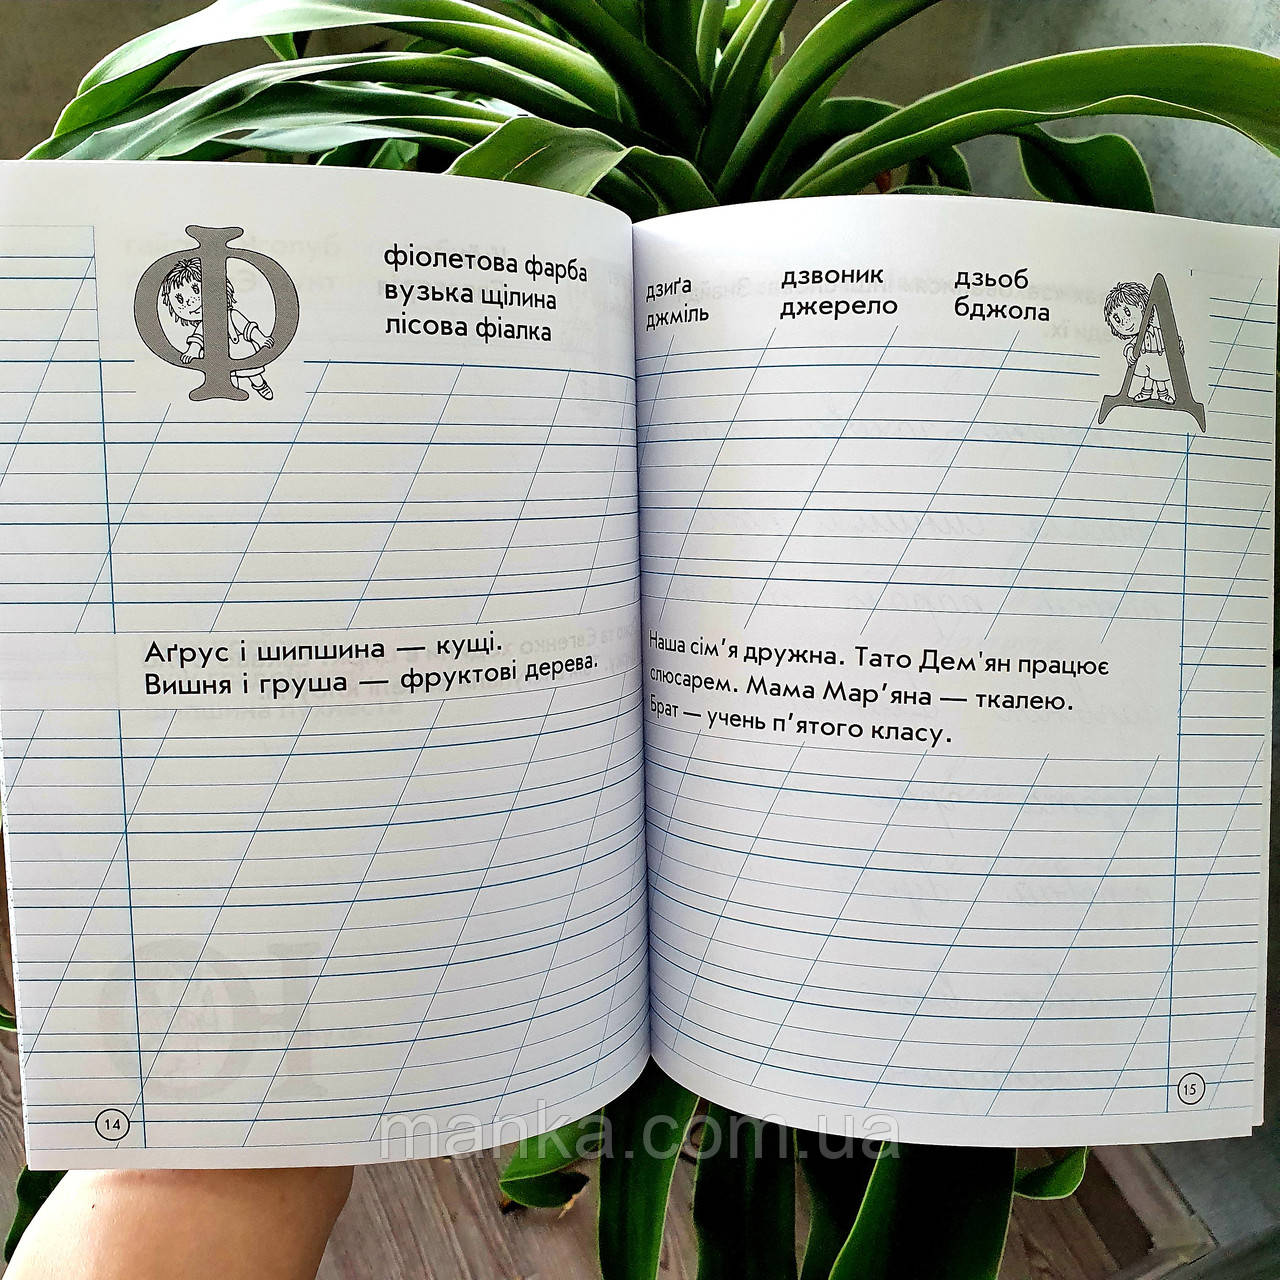 Ф
фіолетова фарба
вузька щілина
лісова фіалка
Аґрус і шипшина — кущі.
Вишня і груша — фруктові дерева.
14
дзиґа дзвоник дзьоб
джміль джерело бджола
Д
Наша сім'я дружна. Тато Дем'ян працює
слюсарем. Мама Мар'яна — ткалею.
Брат — учень п'ятого класу.
15
manka.com.ua